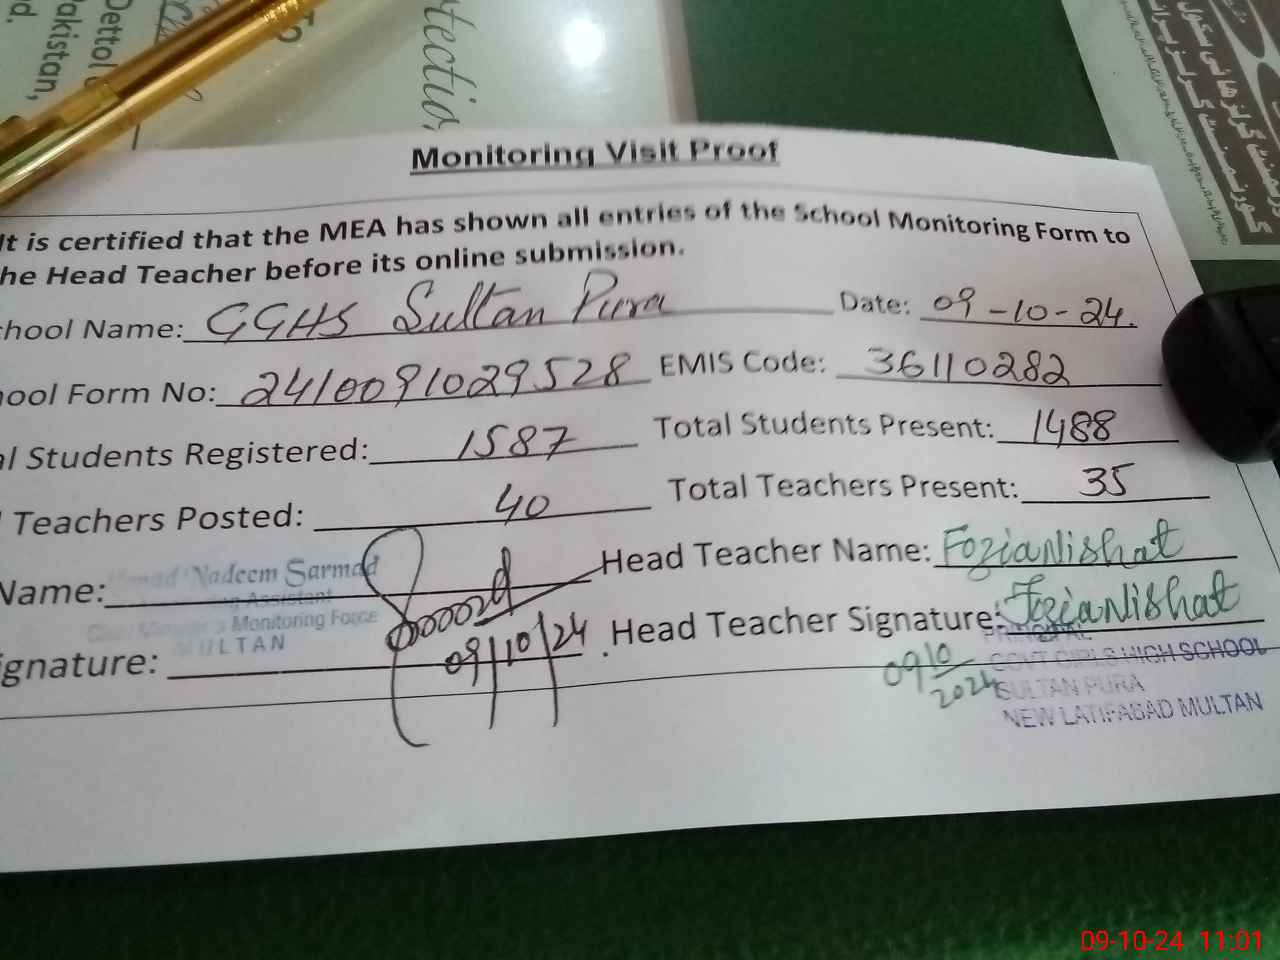 Dettol
Pakistan,
To
Monitoring Visit Proof
It is certified that the MEA has shown all entries of the School Monitoring Form to
he Head Teacher before its online submission.
chool Name: GGHS Sultan Pura Date: 09-10-24.
ool Form No: 2410091029528 EMIS Code: 36110282
al Students Registered: 1587 Total Students Present: 1488
Teachers Posted: 40 Total Teachers Present: 35
Name: Nadeem Sarmad Head Teacher Name: Fozia Nishat
Assistant
Monitoring Force
MULTAN
ignature: 09/10/24 Head Teacher Signature: Fozia Nishat
09/10/2024
PRINCIPAL
GOVT GIRLS HIGH SCHOOL
SULTAN PURA
NEW LATIFABAD MULTAN
09-10-24 11:01